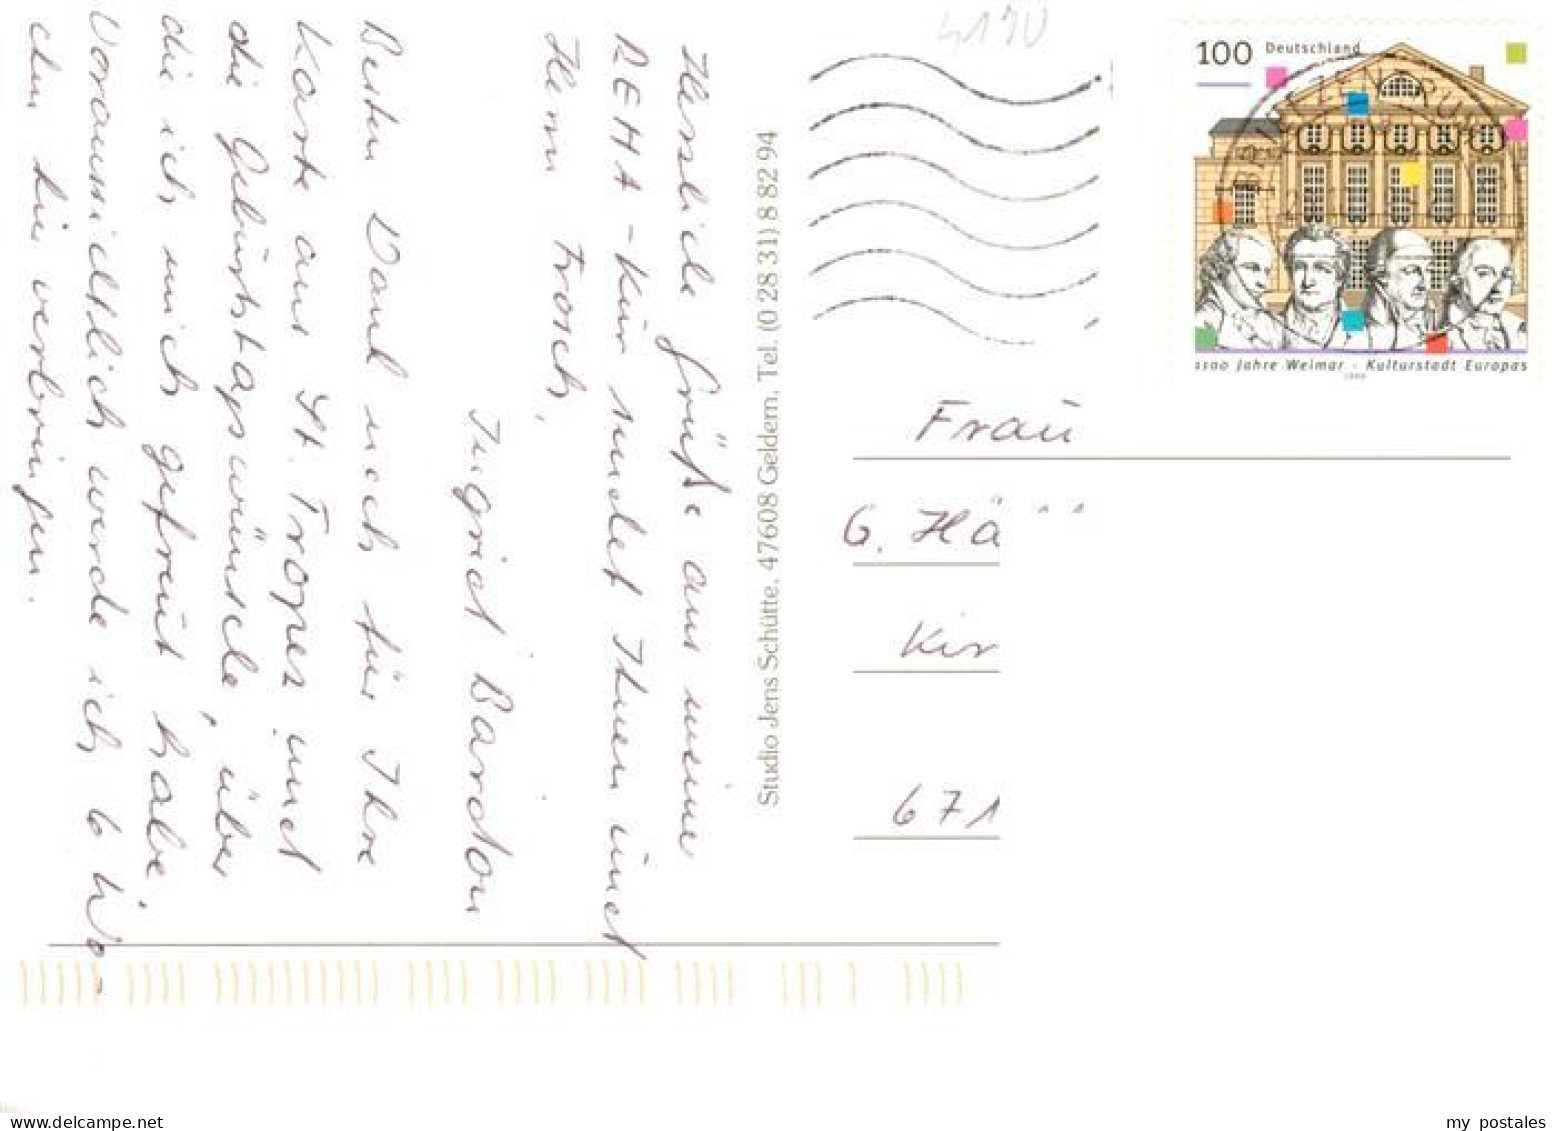 Herzliche Grüße aus meiner
REHA-Kur sendet Ihnen und
Herrn Frosch,
Ingrid Bardon
Besten Dank auch für Ihre
Karte aus St. Tropez und
die Geburtstagswünsche, über
die ich mich gefreut habe.
Voraussichtlich werde ich 6 Wo-
chen hier verbringen.
Studio Jens Schütte, 47608 Geldern, Tel. (0 28 31) 8 82 94
4190
100 Deutschland
1100 Jahre Weimar - Kulturstadt Europas
1999
Frau
G. Hä
Kir
671
delcampe.net
my_postales